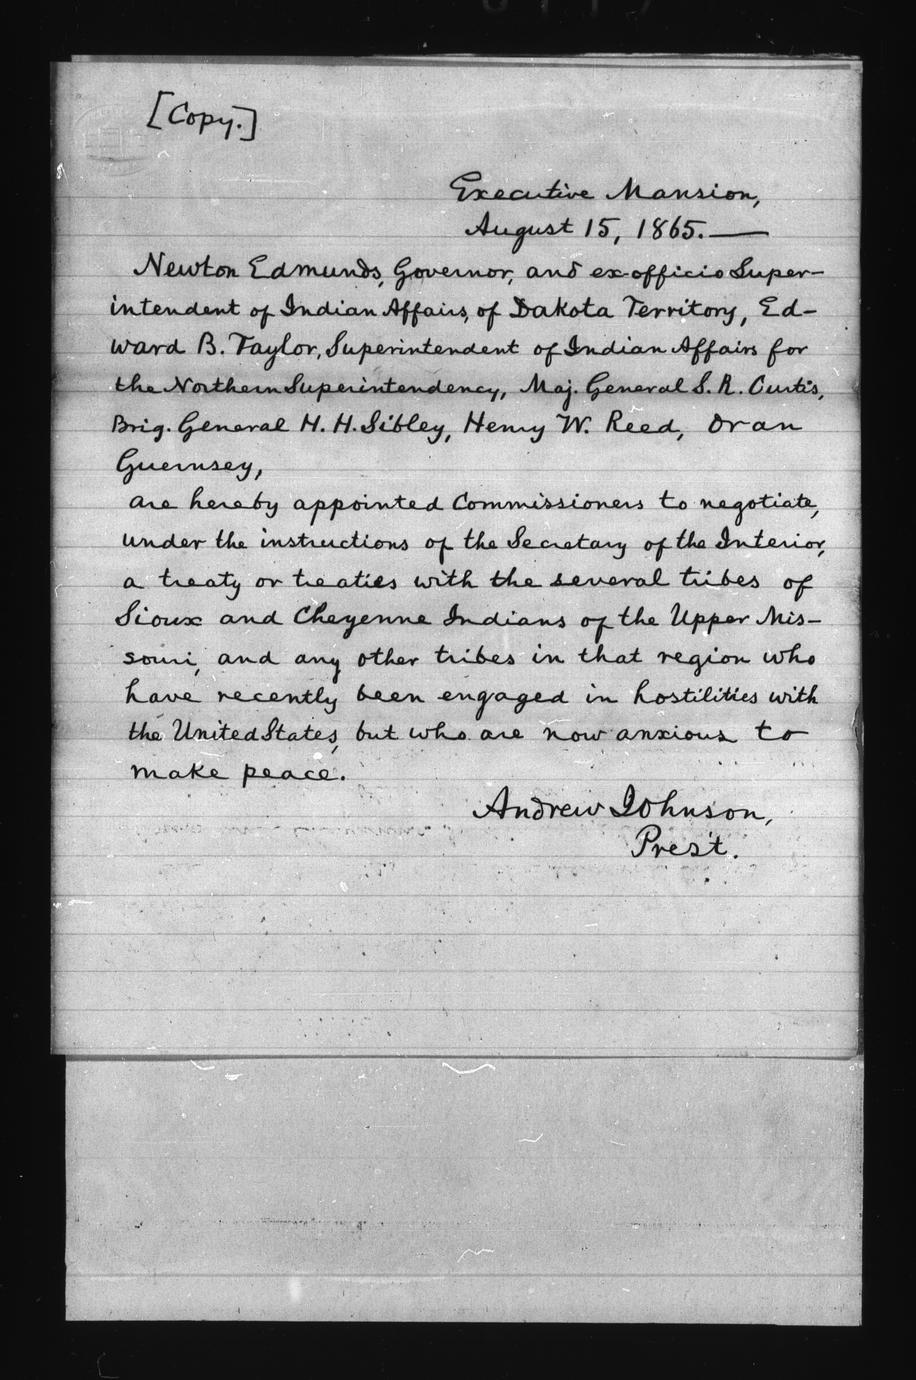 [Copy.]
Executive Mansion,
August 15, 1865.—
Newton Edmunds, Governor, and ex-officio Super-
intendent of Indian Affairs, of Dakota Territory, Ed-
ward B. Taylor, Superintendent of Indian Affairs for
the Northern Superintendency, Maj. General S. R. Curtis,
Brig. General H. H. Sibley, Henry W. Reed, Oran
Guernsey,
are hereby appointed Commissioners to negotiate,
under the instructions of the Secretary of the Interior,
a treaty or treaties with the several tribes of
Sioux and Cheyenne Indians of the Upper Mis-
souri, and any other tribes in that region who
have recently been engaged in hostilities with
the United States, but who are now anxious to
make peace.
Andrew Johnson,
Pres't.